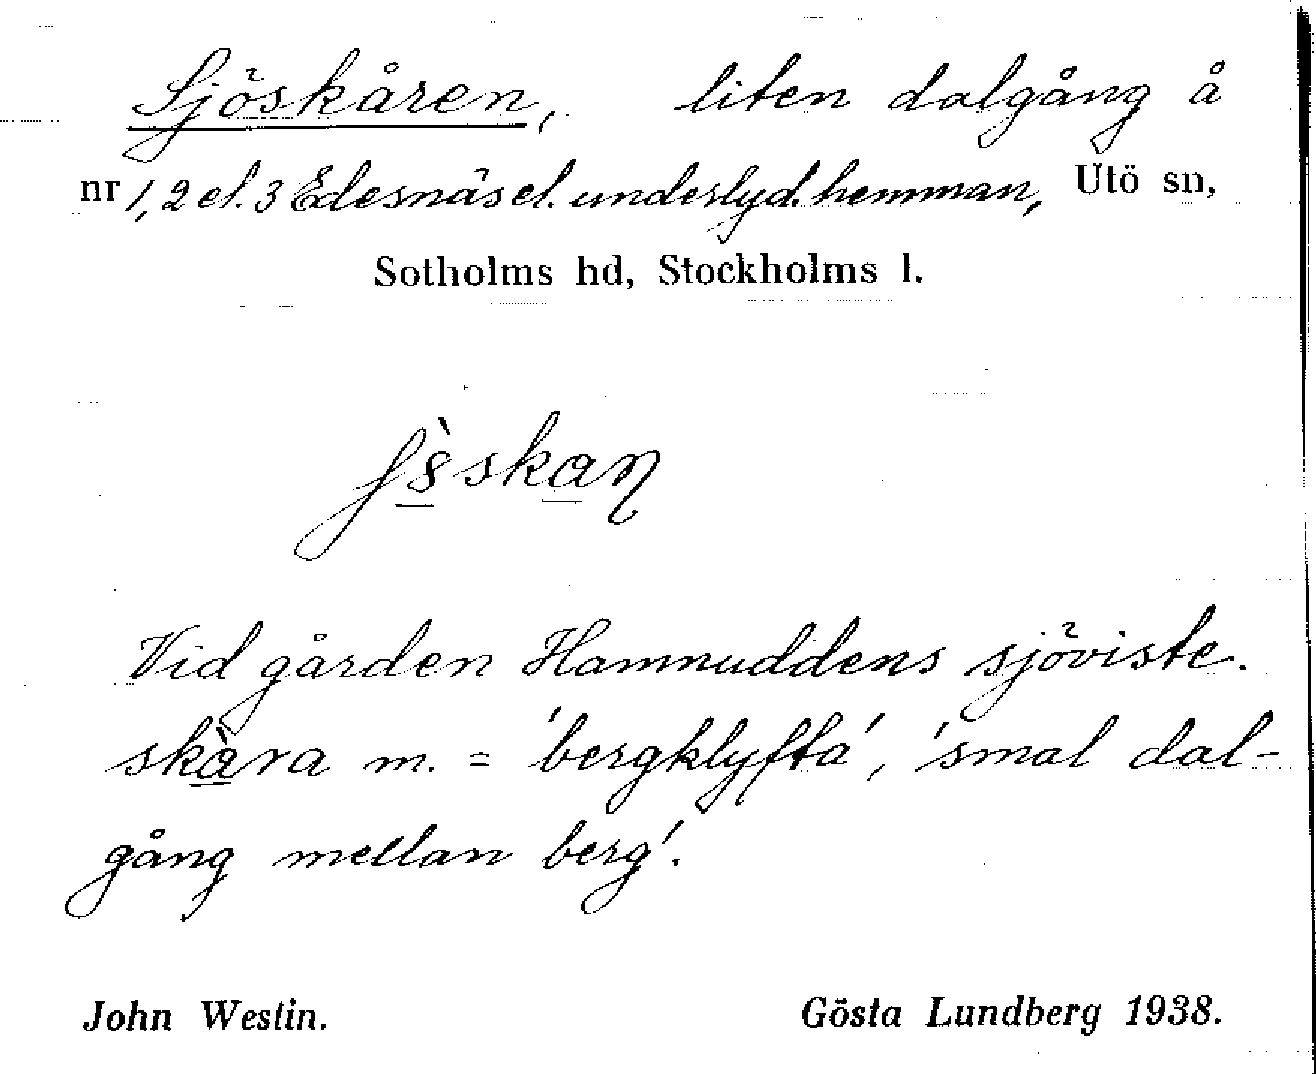 Sjöskåren, liten dalgång å
nr 1, 2 el. 3 Edesnäs el. underlyd. hemman, Utö sn,
Sotholms hd, Stockholms l.
Vid gården Hamnuddens sjöviste.
skàra m. = 'bergklyfta', 'smal dal-
gång mellan berg'.
John Westin. Gösta Lundberg 1938.